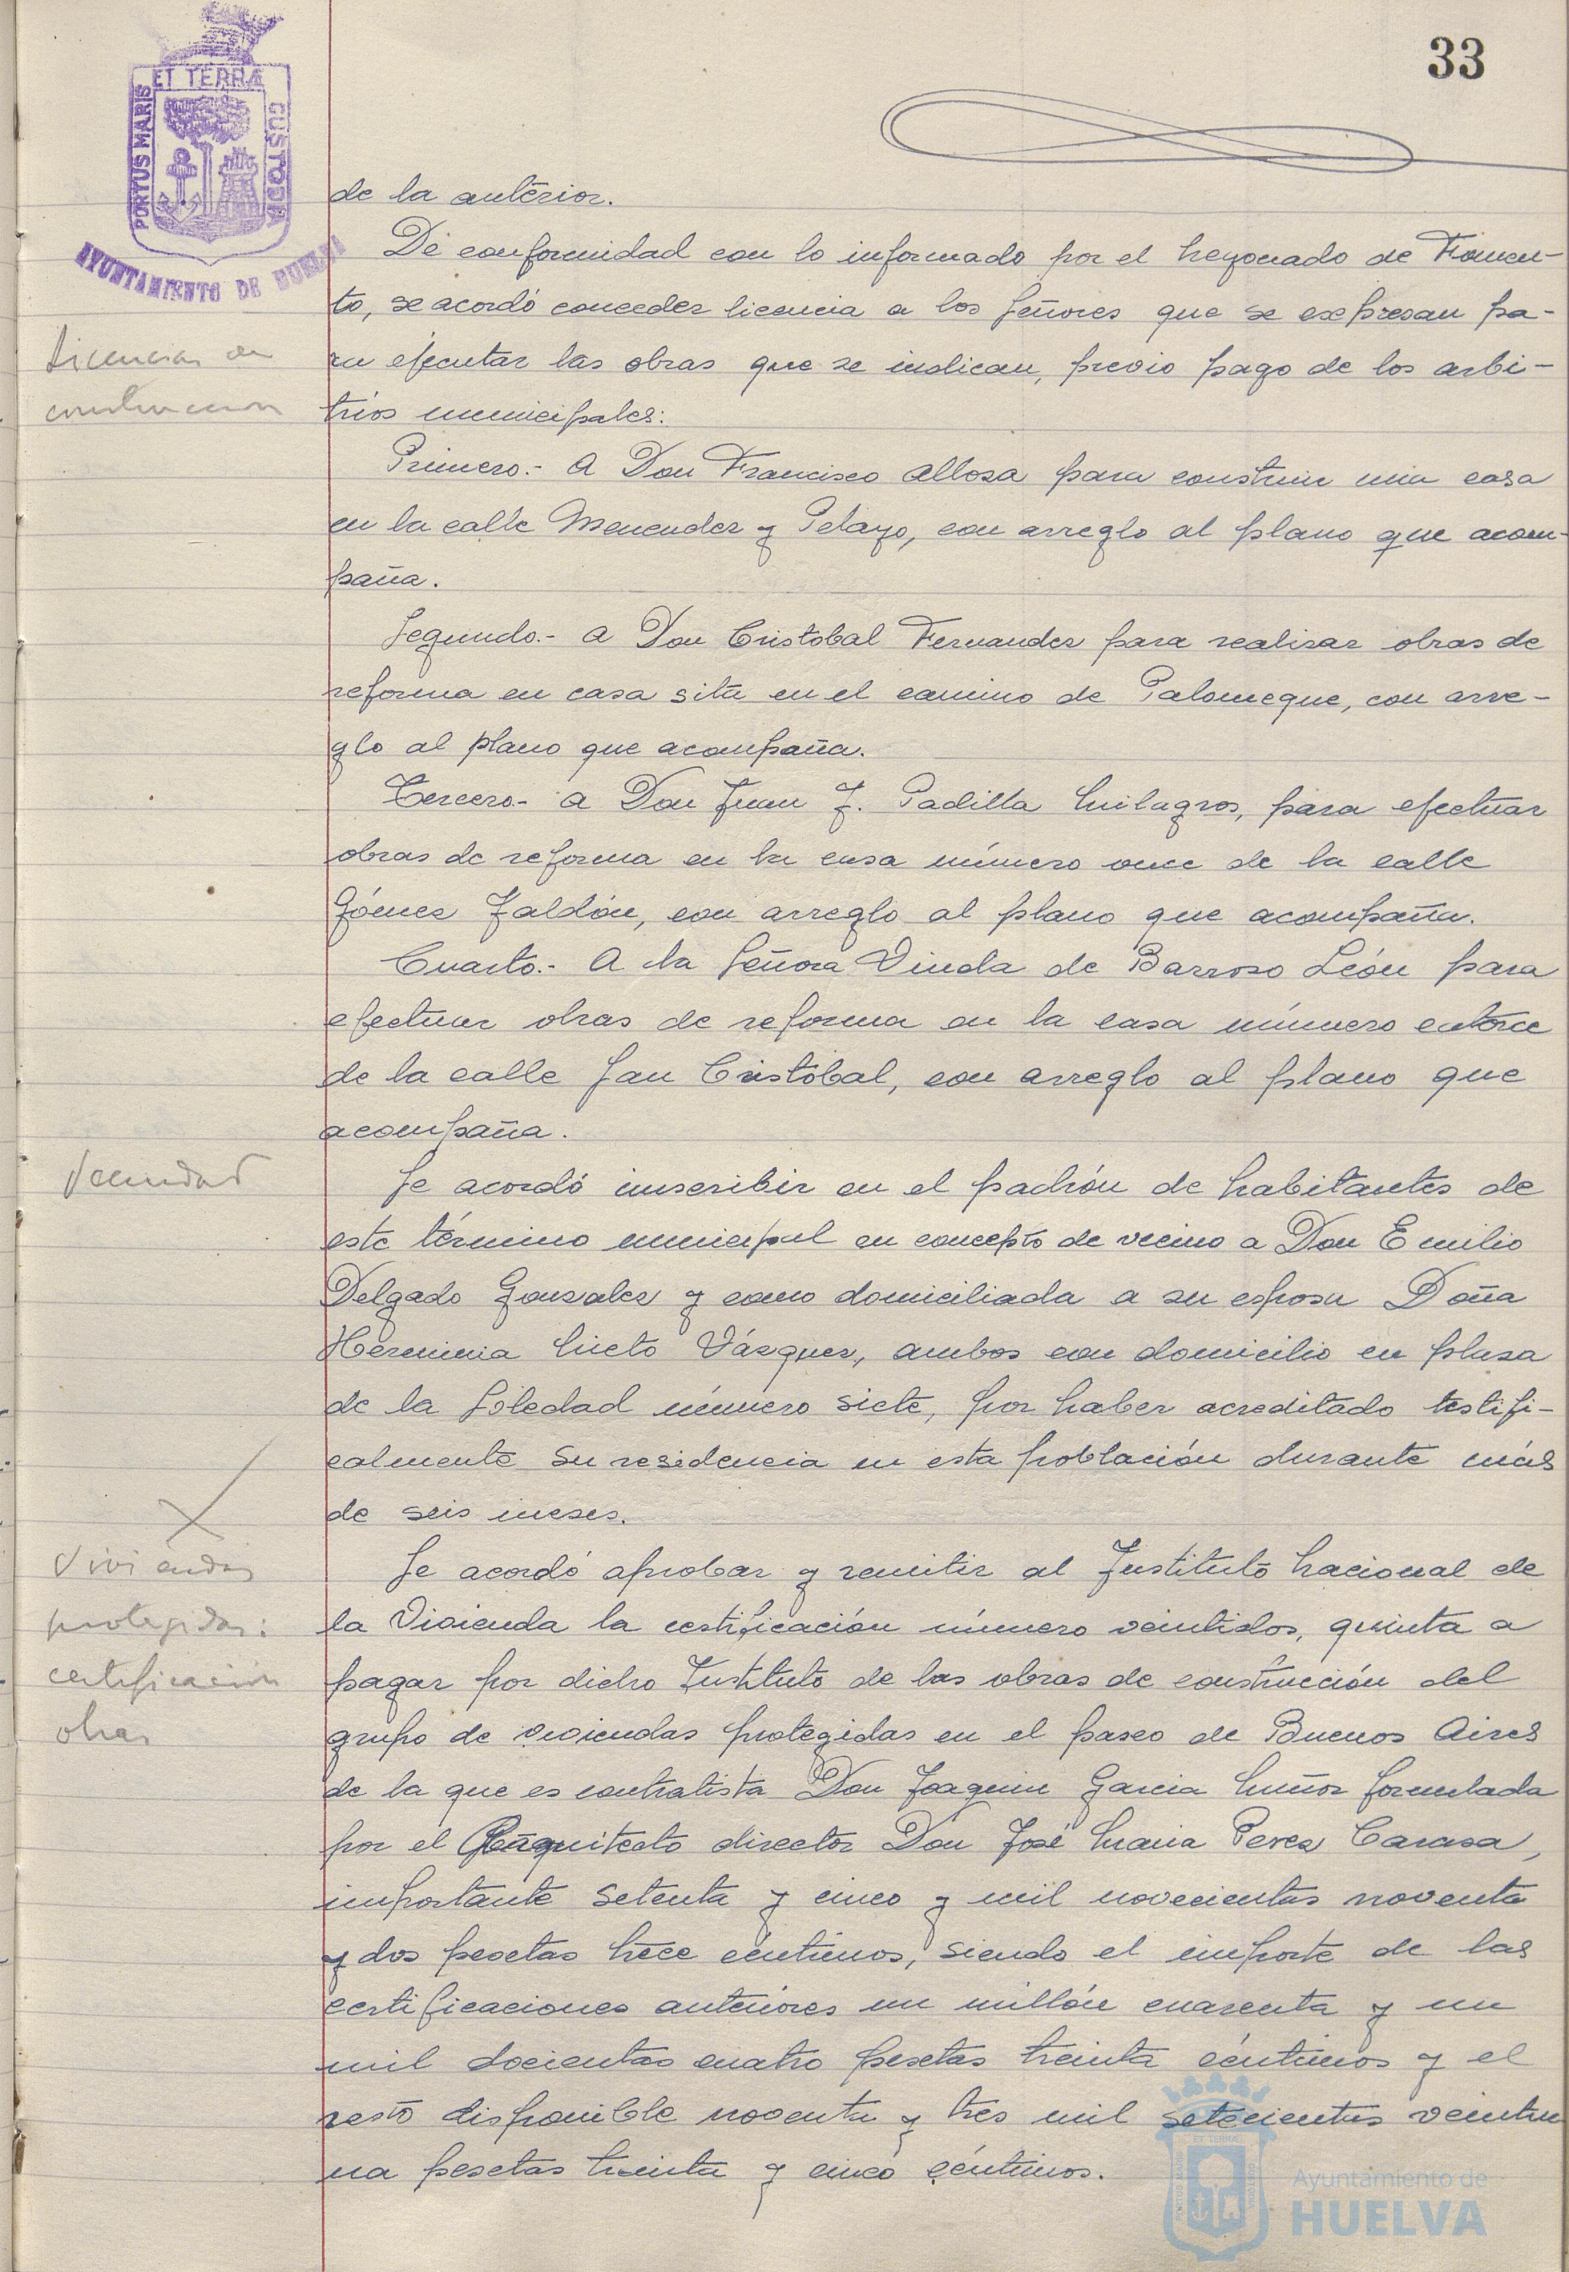 33
ET TERRÆ
PORTUS MARIS
CUSTODIA
AYUNTAMIENTO DE HUELVA
de la anterior.
De conformidad con lo informado por el Negociado de Fomen-
to, se acordó conceder licencia a los Señores que se expresan pa-
Licencias de
ra ejecutar las obras que se indican, previo pago de los arbi-
construccion
trios municipales:
Primero.- A Don Francisco Allosa para construir una casa
en la calle Menendez y Pelayo, con arreglo al plano que acom-
paña.
Segundo.- A Don Cristobal Fernandez para realizar obras de
reforma en casa sita en el camino de Palomeque, con arre-
glo al plano que acompaña.
Tercero.- a Don Juan J. Padilla Milagros, para efectuar
obras de reforma en la casa número once de la calle
Gómez Jaldón, con arreglo al plano que acompaña.
Cuarto.- A la Señora Viuda de Barroso León para
efectuar obras de reforma en la casa número catorce
de la calle San Cristóbal, con arreglo al plano que
acompaña.
Vecindad
Se acordó inscribir en el padrón de habitantes de
este término municipal en concepto de vecino a Don Emilio
Delgado Gonzalez y como domiciliada a su esposa Doña
Herminia Nieto Vázquez, ambos con domicilio en plaza
de la Soledad número siete, por haber acreditado testifi-
calmente su residencia en esta población durante más
de seis meses.
Viviendas
Se acordó aprobar y remitir al Instituto Nacional de
protegidas:
la Vivienda la certificación número veintidos, quinta a
certificación
pagar por dicho Instituto de las obras de construcción del
obras
grupo de viviendas protegidas en el paseo de Buenos Aires
de la que es contratista Don Joaquin Garcia Muñoz formulada
por el Arquitecto director Don José Maria Perez Carasa,
importante setenta y cinco y mil novecientas noventa
y dos pesetas trece céntimos, siendo el importe de las
certificaciones anteriores un millón cuarenta y un
mil docientas cuatro pesetas treinta céntimos y el
resto disponible noventa y tres mil setecientas veintiu
na pesetas treinta y cinco céntimos.
Ayuntamiento de
HUELVA